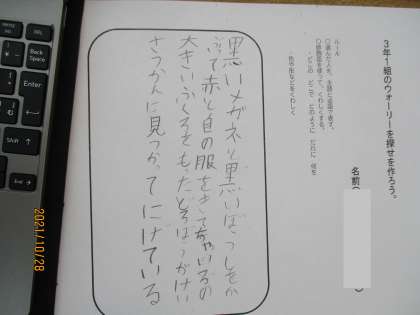 3年1組のウォーリーを探せを作ろう。
名前
ルール
○選んだ人を、主語と述語で表す。
○修飾語を使って、くわしくする。
・どこの どこで どのように だれに 何を
・色や形などをくわしく
黒いメガネと黒いぼうしをか
ぶて赤と白の服をきてちゃいろの
大きいふくろをもったどろぼうがけい
さつかんに見つかってにげている
Back
Space
Enter
Shift
End
2021/10/28